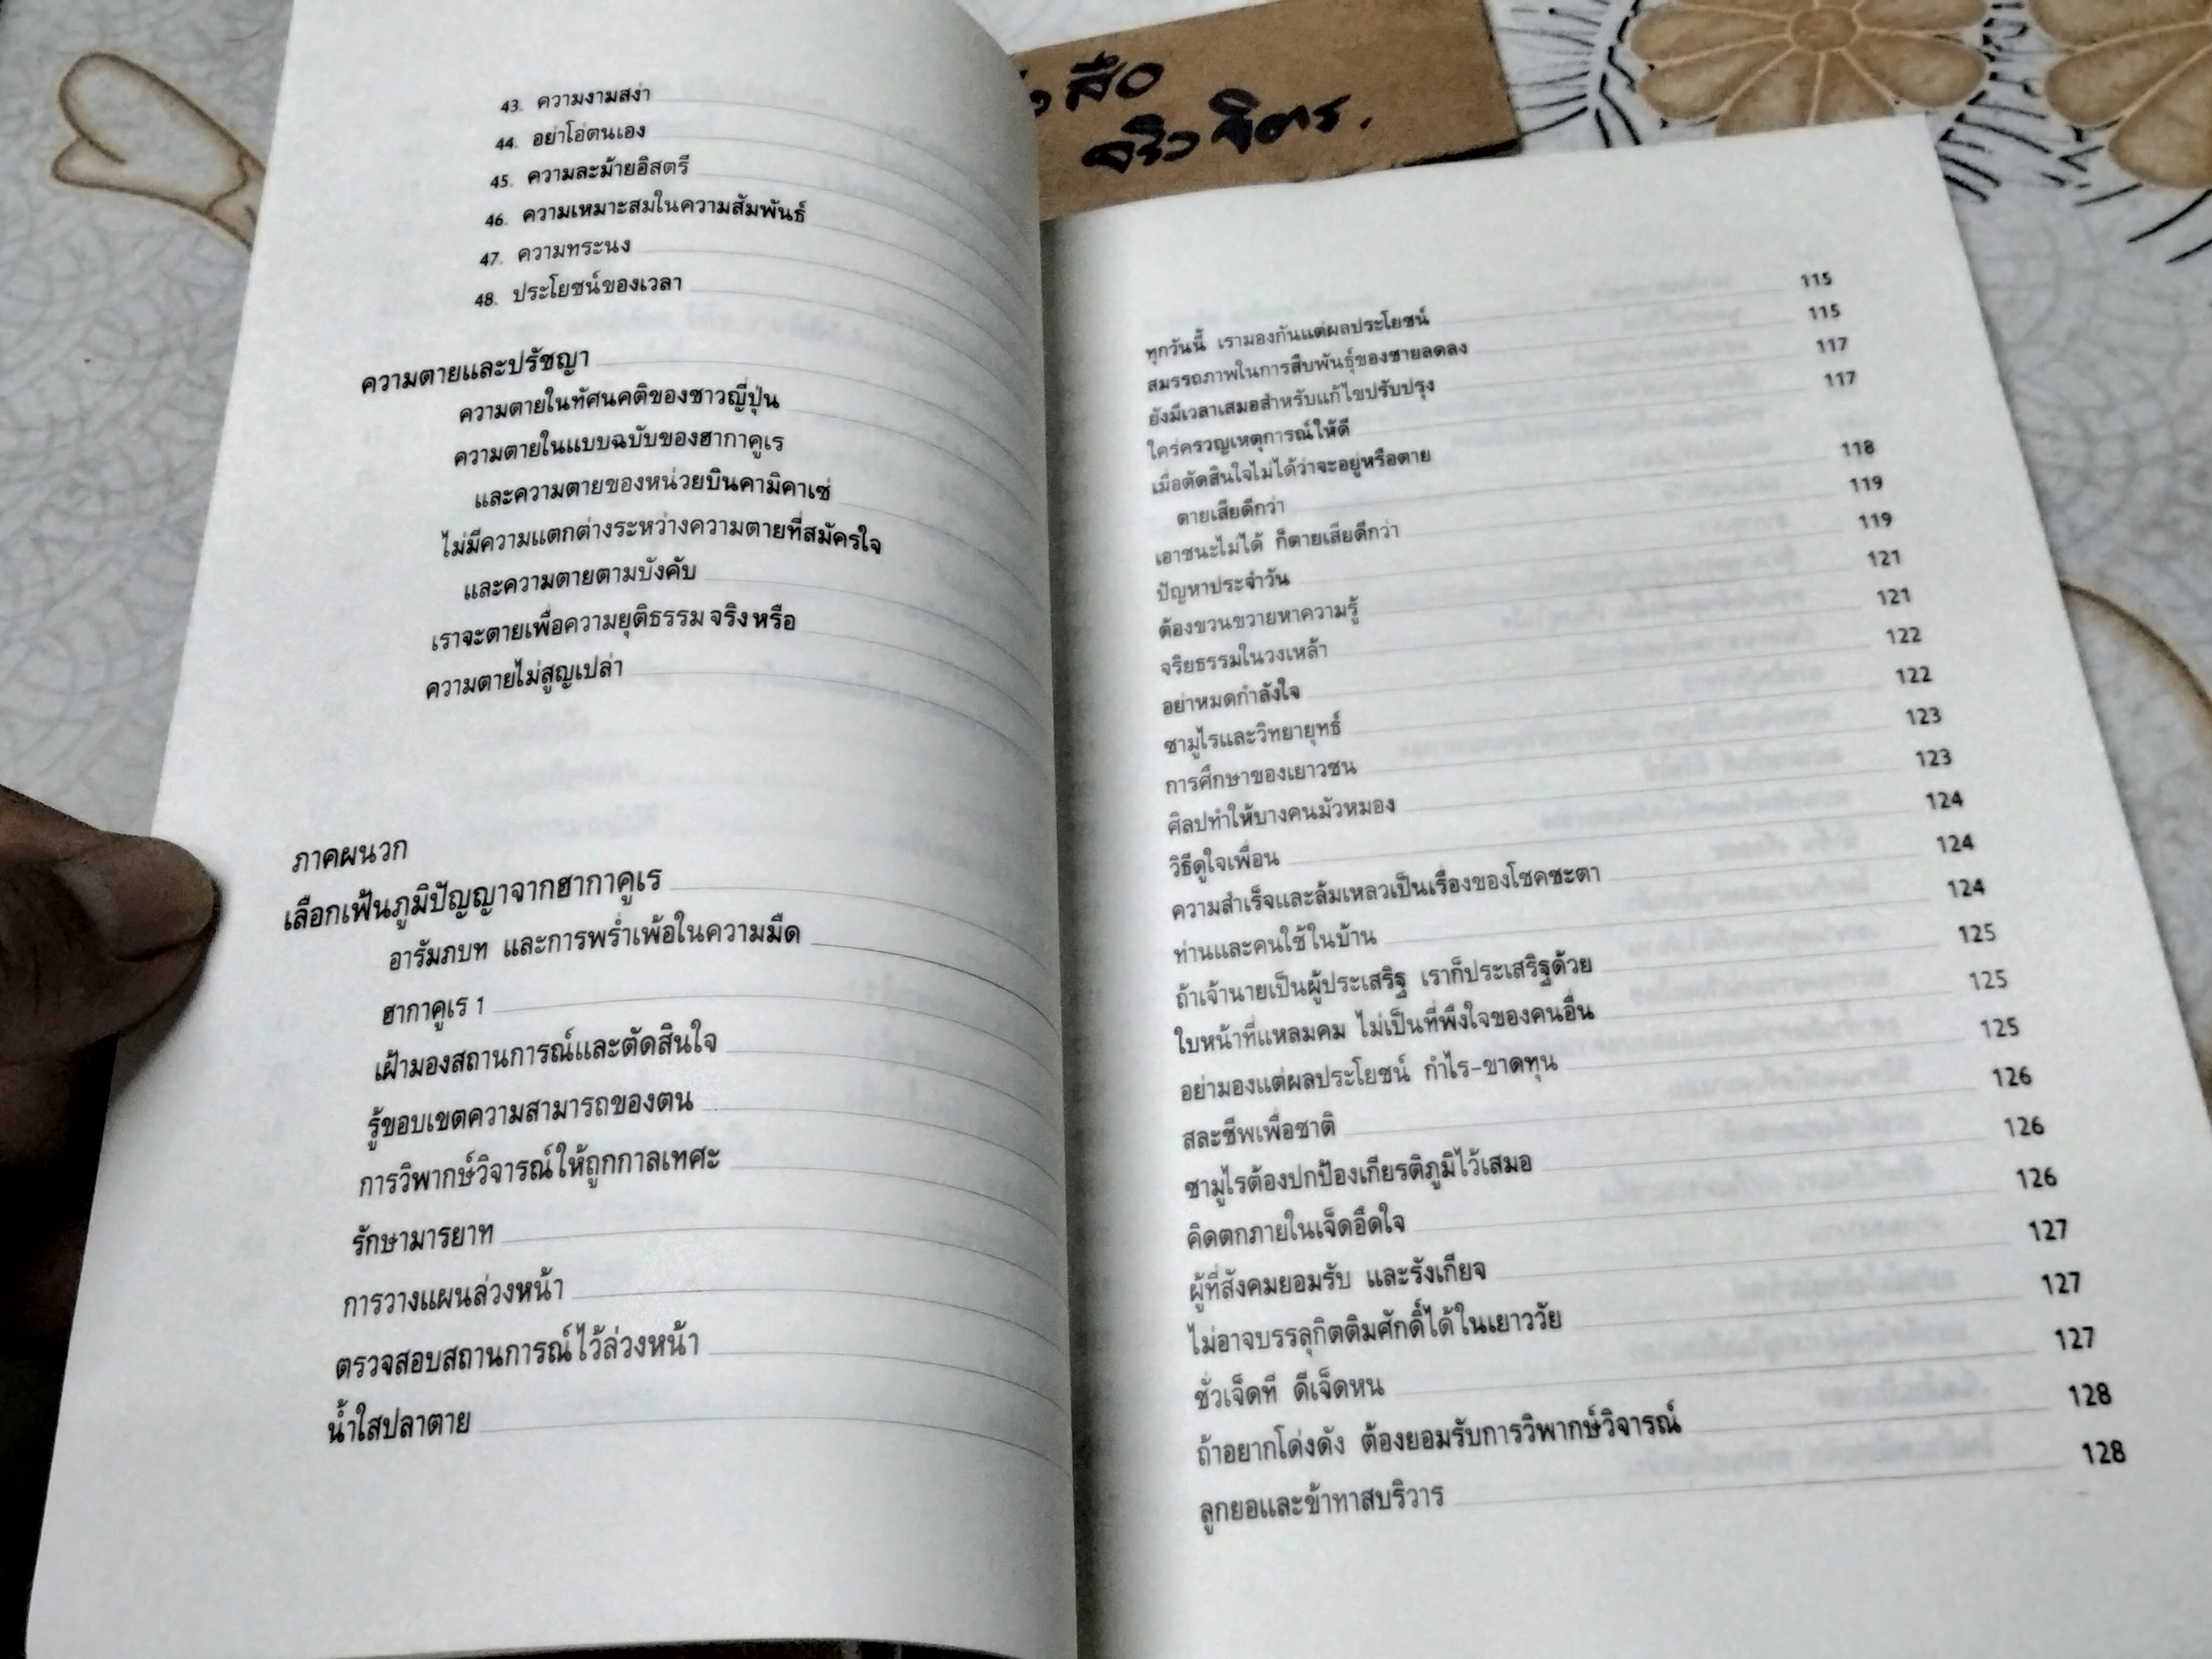 สือ
จริวจิตร.
43. ความงามสง่า
44. อย่าโอ่ตนเอง
45. ความละม้ายอิสตรี
46. ความเหมาะสมในความสัมพันธ์
47. ความทระนง
48. ประโยชน์ของเวลา
ความตายและปรัชญา
ความตายในทัศนคติของชาวญี่ปุ่น
ความตายในแบบฉบับของฮากาคูเร
และความตายของหน่วยบินคามิคาเซ่
ไม่มีความแตกต่างระหว่างความตายที่สมัครใจ
และความตายตามบังคับ
เราจะตายเพื่อความยุติธรรม จริงหรือ
ความตายไม่สูญเปล่า
ภาคผนวก
เลือกเฟ้นภูมิปัญญาจากฮากาคูเร
อารัมภบท และการพร่ำเพ้อในความมืด
ฮากาคูเร 1
เฝ้ามองสถานการณ์และตัดสินใจ
รู้ขอบเขตความสามารถของตน
การวิพากษ์วิจารณ์ให้ถูกกาลเทศะ
รักษามารยาท
การวางแผนล่วงหน้า
ตรวจสอบสถานการณ์ไว้ล่วงหน้า
น้ำใสปลาตาย
ทุกวันนี้ เรามองกันแต่ผลประโยชน์ 115
สมรรถภาพในการสืบพันธุ์ของชายลดลง 115
ยังมีเวลาเสมอสำหรับแก้ไขปรับปรุง 117
ใคร่ครวญเหตุการณ์ให้ดี 117
เมื่อตัดสินใจไม่ได้ว่าจะอยู่หรือตาย
ตายเสียดีกว่า 118
เอาชนะไม่ได้ ก็ตายเสียดีกว่า 119
ปัญหาประจำวัน 119
ต้องขวนขวายหาความรู้ 121
จริยธรรมในวงเหล้า 121
อย่าหมดกำลังใจ 122
ซามูไรและวิทยายุทธ์ 122
การศึกษาของเยาวชน 123
ศิลปทำให้บางคนมัวหมอง 123
วิธีดูใจเพื่อน 124
ความสำเร็จและล้มเหลวเป็นเรื่องของโชคชะตา 124
ท่านและคนใช้ในบ้าน 124
ถ้าเจ้านายเป็นผู้ประเสริฐ เราก็ประเสริฐด้วย 125
ใบหน้าที่แหลมคม ไม่เป็นที่พึงใจของคนอื่น 125
อย่ามองแต่ผลประโยชน์ กำไร-ขาดทุน 125
สละชีพเพื่อชาติ 126
ซามูไรต้องปกป้องเกียรติภูมิไว้เสมอ 126
คิดตกภายในเจ็ดอึดใจ 126
ผู้ที่สังคมยอมรับ และรังเกียจ 127
ไม่อาจบรรลุกิตติมศักดิ์ได้ในเยาววัย 127
ชั่วเจ็ดที ดีเจ็ดหน 127
ถ้าอยากโด่งดัง ต้องยอมรับการวิพากษ์วิจารณ์ 128
ลูกยอและข้าทาสบริวาร 128